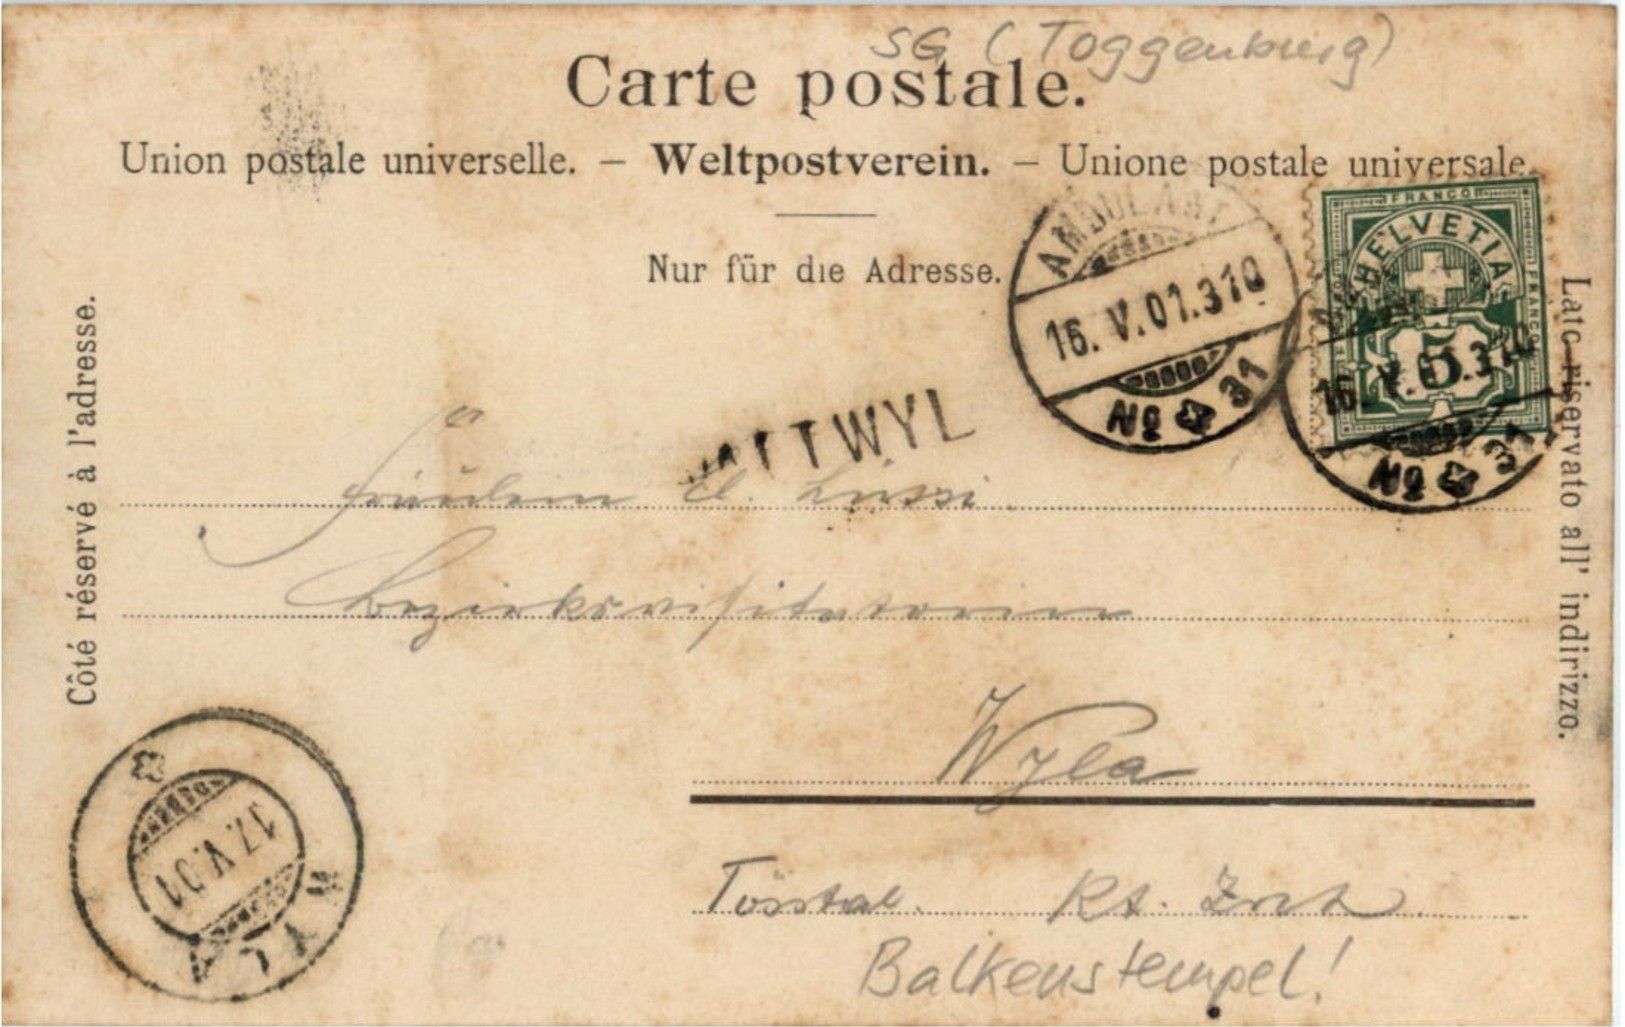 SG (Toggenburg)
Carte postale.
Union postale universelle. – Weltpostverein. – Unione postale universale.
Nur für die Adresse.
Côté réservé à l'adresse.
Lato riservato all' indirizzo.
FRANCO
HELVETIA
FRANCO
5
AMBULANT
16. V. 01. 310
No 31
16. V. 01. 310
No 31
TWYL
Fräulein E. Lüssi
Bezirksvisitatorin
Wyla
Tösstal. Kt. Zrch
Balkenstempel!
WYLA
17. V. 01